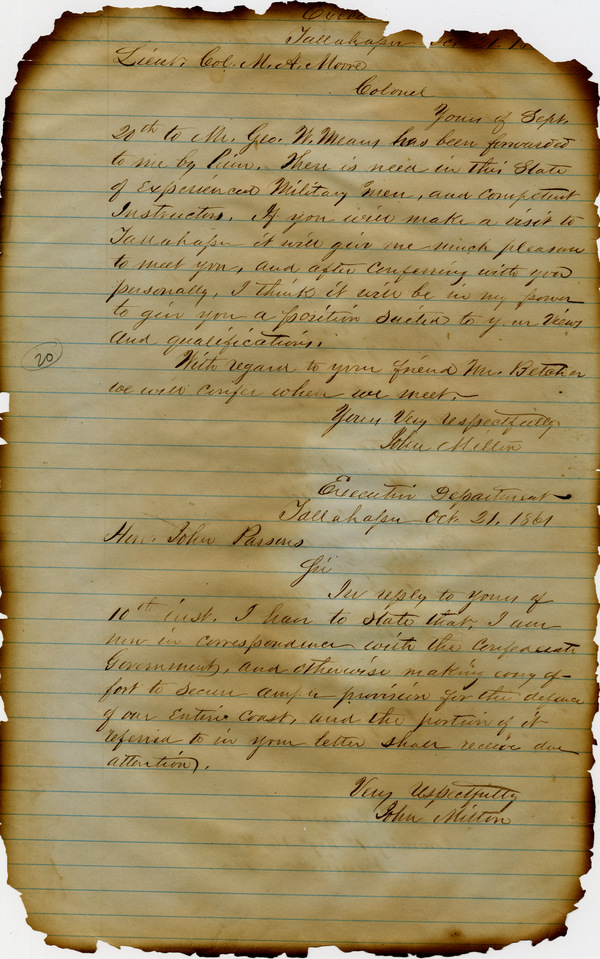 Tallahassee
Lieut. Col. M. A. Moore
Colonel
Yours of Sept.
20th to Mr. Geo. W. Means has been forwarded
to me by him. There is need in this State
of Experienced Military men, and Competent
Instructors. If you will make a visit to
Tallahassee it will give me much pleasure
to meet you, and after Conferring with you
personally, I think it will be in my power
to give you a position suited to your Views
and qualifications.
20
With regard to your friend Mr.
we will confer when we meet.
Yours Very respectfully
John Milton
Executive Department
Tallahassee Oct. 21. 1861
Hon. John Parsons
Sir
In reply to yours of
10th inst. I have to State that, I am
now in correspondence with the Confederate
Government, and otherwise making every ef-
fort to secure ample provision for the defence
of our Entire Coast, and the portion of it
referred to in your letter shall receive due
attention.
Very respectfully
John Milton